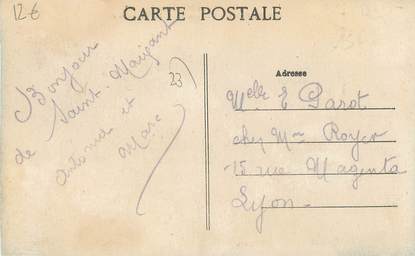 12€
CARTE POSTALE
23
Bonjour
de Saint-Maixant
Antonia et
Marc
Adresse
Melle E Parot
chez Mme Royer
15 rue Magenta
Lyon